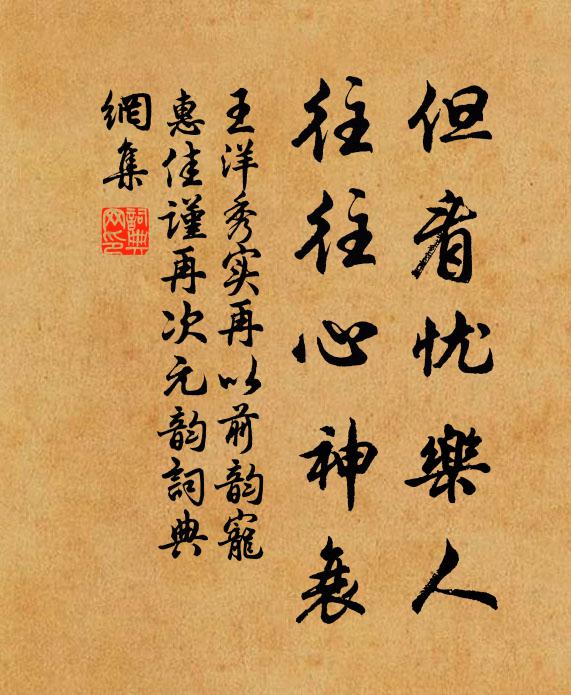 但看忧樂人
往往心神衰
王洋秀实再以前韵寵
惠佳謹再次元韵詞典
網集
詞典網印